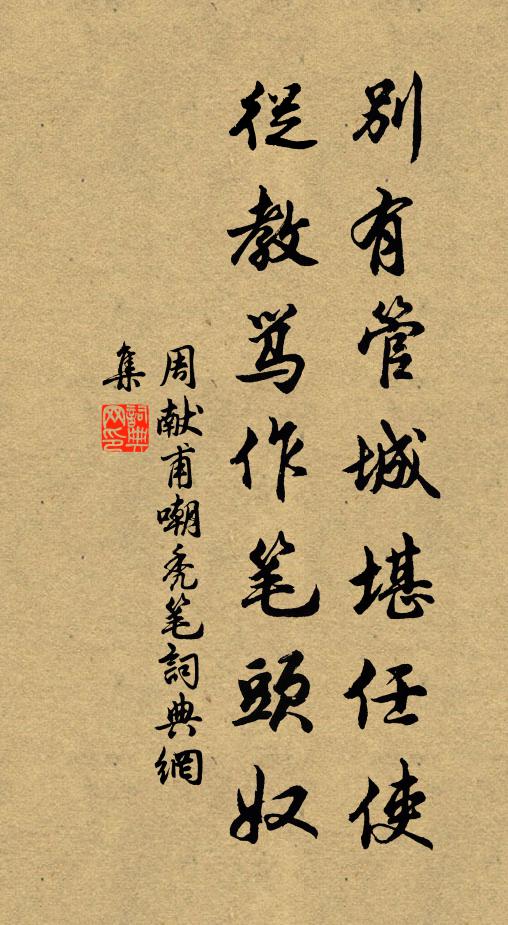 别有管城堪任使
從教骂作笔頭奴
周献甫嘲秃笔詞典網
集
詞典
网印